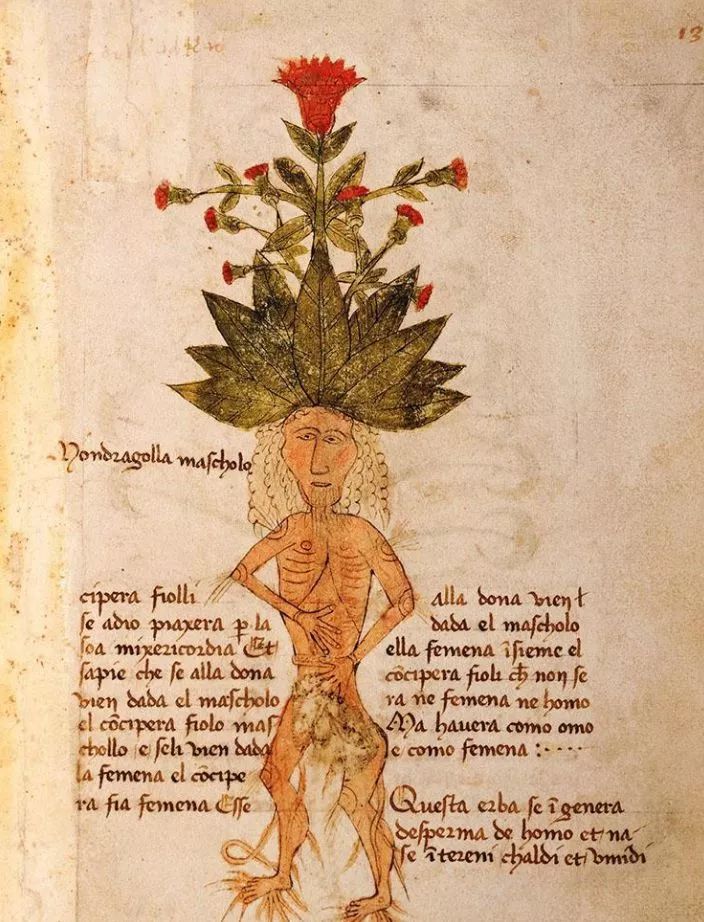 13
Mondragolla mascholo
cipera fiolli
se adio piaxera ꝑ la
soa mixericordia Et
sapie che se alla dona
vien dada el mascholo
el cōcipera fiolo mas
chollo e seli vien dada
la femena el cōcipe
ra fia femena Esse
alla dona vien ł
dada el mascholo
ella femena īsieme el
cōcipera fioli cħ non se
ra ne femena ne homo
Ma havera como omo
e como femena :····
Questa erba se īgenera
desperma de homo et na-
se ī tereni chaldi et vmidi